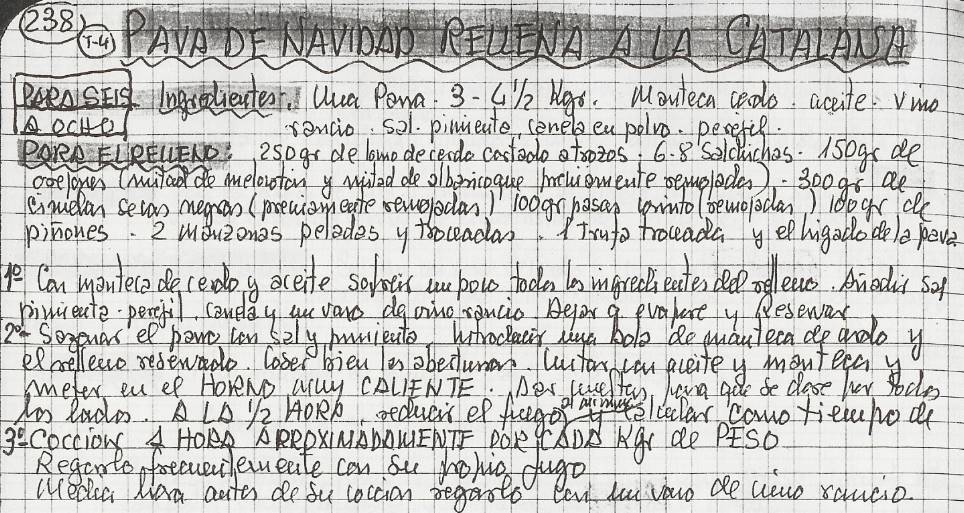 238 T-4 PAVA DE NAVIDAD RELLENA A LA CATALANA
PARA SEIS Ingredientes. Una Pava. 3 - 4 1/2 Kgr. Manteca cerdo. aceite. vino
A OCHO rancio. Sal. pimienta, canela en polvo. perejil.
PARA EL RELLENO: 250 gr de lomo de cerdo cortado a trozos. 6-8 Salchichas. 150 gr de
orejones (mitad de melocotón y mitad de albaricoque previamente remojados). 300 gr de
ciruelas secas negras (previamente remojadas) 100 gr pasas corinto (remojadas) 100 gr de
piñones. 2 manzanas peladas y troceadas. 1 Trufa troceada y el higado de la pava
1º Con manteca de cerdo y aceite sofreir un poco todos los ingredientes del relleno. Añadir sal
pimienta. perejil, canela y un vaso de vino rancio. Dejar q evapore y Reservar
2º- Sazonar el pavo con sal y pimienta. Introducir una bola de manteca de cerdo y
el relleno reservado. Coser bien las aberturas. Untar con aceite y manteca y
meter en el HORNO MUY CALIENTE. Dar vueltas para que se dore por todos
los lados. A LA 1/2 HORA reducir el fuego al minimo y calcular como tiempo de
3º- COCCION 1 HORA APROXIMADAMENTE POR CADA Kgr de PESO
Regarlo frecuentemente con su propio jugo
Media hora antes de su coccion regarlo con un vaso de vino rancio.